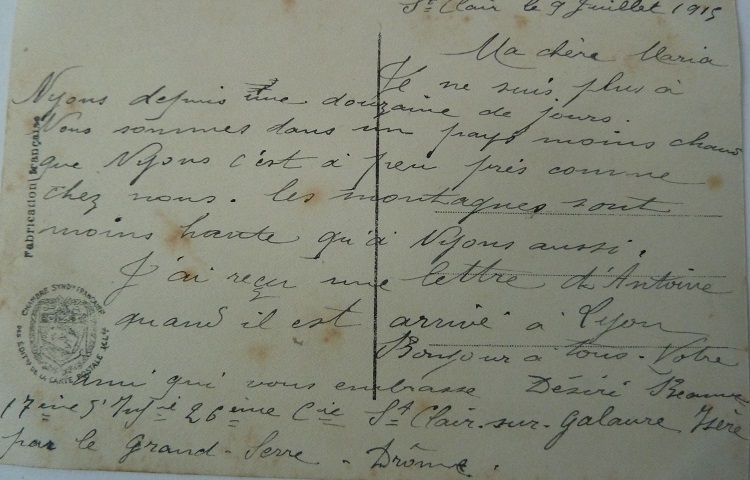 St Clair le 9 Juillet 1915
Ma chère Maria
Je ne suis plus à
Nyons depuis une douzaine de jours.
Nous sommes dans un pays moins chaud
que Nyons c'est à peu près comme
chez nous. les montagnes sont
moins haute qu'à Nyons aussi.
J'ai reçu une lettre d'Antoine
quand il est arrivé à Lyon
Bonjour à tous. Votre
ami qui vous embrasse Désiré
17ème 5' Inf.ie 26ème Cie St Clair-sur-Galaure Isère
par le Grand-Serre - Drôme.
Fabrication Française
CHAMBRE SYNDle FRANÇAISE
DE LA CARTE POSTALE